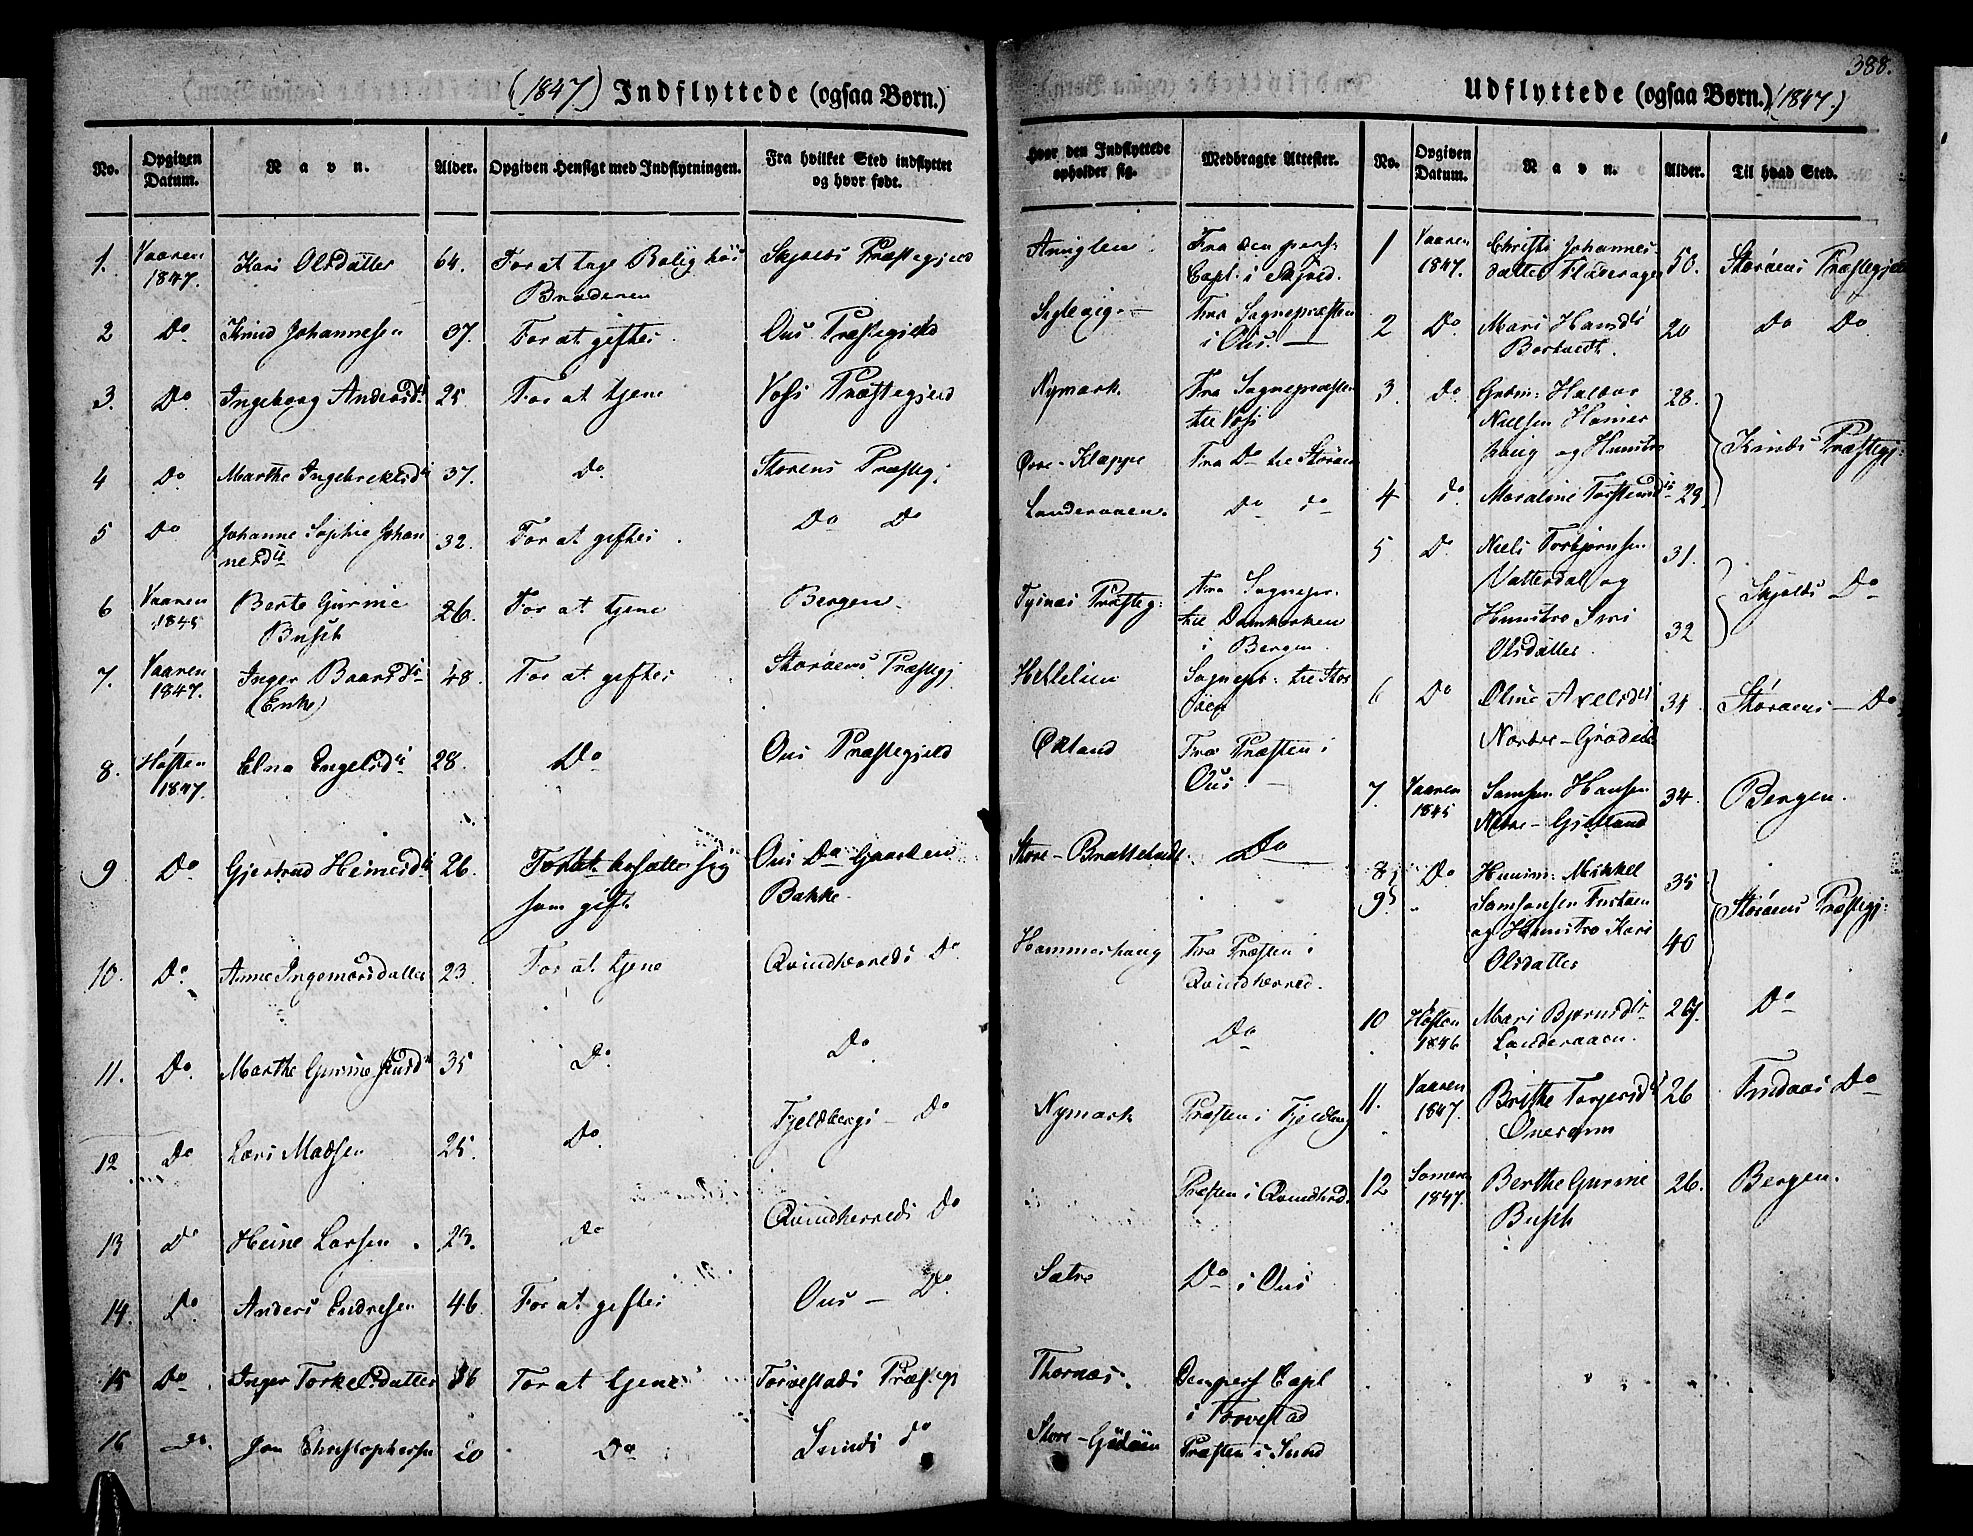 (1847) Indflyttede (ogsaa Børn.)
No. Opgiven Datum. Navn. Alder. Opgiven Hensigt med Indflytningen. Fra hvilket Sted indflyttet og hvor født.
1. Vaaren 1847. Kari Olsdatter 64. For at tage Bolig hos Broderen Skjolds Præstegjeld
2 Do Knud Johannesen 37. For at giftes. Ous Præstegjeld
3. Do Ingeborg Andersd. 25 For at tjene Voss Præstegjeld
4 Do Marthe Ingebrektsd. 37. Do Storøens Præsteg:
5 Do Johanne Sophie Johannesd. 32. For at giftes. Do Do
6 Vaaren 1845 Berte Gurine Busch 26. For at tjene Bergen.
7. Vaaren 1847. Inger Baarsd. (Enke) 48. For at giftes Storøens Præstegj.
8. Høsten 1847. Elna Engelsd. 28. Do Ous Præstegjeld
9 Do Gjertrud Heinesd. 26. For at nedsætte sig som gift Ous Do Gaarden Bakke.
10. Do. Anne Ingemarsdatter 23. For at tjene Qvindherreds Do.
11. Do. Marthe Gurine 35 Do. Do
12 Do Lars Madsen 25. Do. Fjeldbergs Do
13 Do Heine Larsen 23. Do Qvindherreds Do
14. Do. Anders Endresen 46. For at giftes Ous – Do.
15 Do Inger Torkelsdatter 36 For at tjene Torvestads Præstegj
16 do. Jon Christophersen 20 Do Sunds do
388.
Udflyttede (ogsaa Børn.) (1847.)
Hvor den Indflyttede opholder sig. Medbragte Attester. No. Opgiven Datum. Navn. Alder. Til hvad Sted.
Fra den pers: Capl. i Skjold.
Fra Sognepræsten i Ous.
Nymark. Fra Sognepræsten til Voss
Øvre-Klappe Fra Do til Storøen
Landeraaen. Do do
Tysnes Præsteg: Fra Sognepr. til Domkirken i Bergen.
Sognepr. til Storøen
Økland Fra Præsten i Ous.
Store-Brattelandt. Do
Hammerhaug Fra Præsten i Qvindherred.
Do
Nymark Præsten i Fjeldberg
Præsten i Qvindherd.
Sætre Do i Ous
Thornæs. Den pers Capl i Torvestad
Præsten i Sund
1 Vaaren 1847. Christi Johannesdatter 50. Storøens Præstegjeld
2 Do Mari Hansd. 20 Do Do
3 Do Grbm: Halvor Nielsen Hammerhaug og Hunstro 28. Kinds Præstegj:
4 do 29
5 D. Niels Torbjørnsen Vatterdal og Hunstro Siri Olsdatter. 31. 32 Skjolds Do
6 Do Oline Axelsd. 31 Storøens – Do
7. Vaaren 1845 Samson Hansen 34. Bergen.
8, 9, Do Huusm: Mikkel Samsonsen og Hunstro Kari Olsdatter 35 40 Storøens Præstegj:
10 Høsten 1846 Mari Bjørnsd. Landeraaen. 26. Do
11. Vaaren 1847. Brithe Torgersd. 26 Findaas Do
12 Someren 1847. Berthe Gurine Busch 26. Bergen.